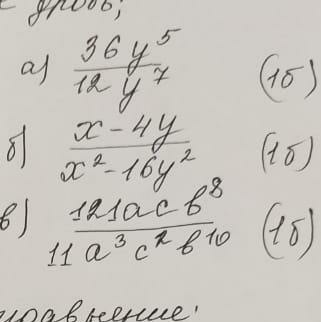 дробь;
а) 36y⁵ / 12y⁷ (1б)
б) x - 4y / x² - 16y² (1б)
в) 121acb⁸ / 11a³c²b¹⁰ (1б)